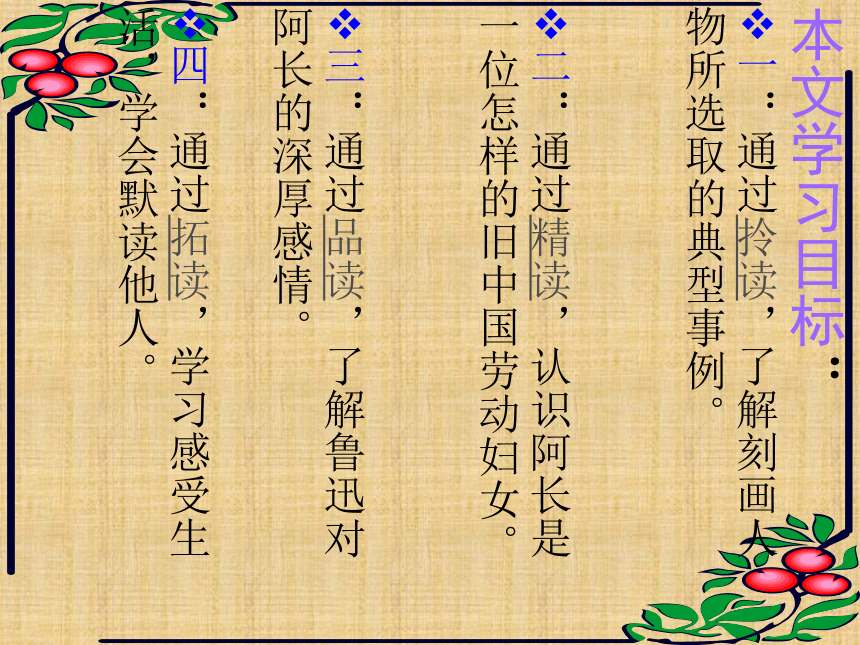 本文学习目标：
❖一：通过拎读，了解刻画人
物所选取的典型事例。
❖二：通过精读，认识阿长是
一位怎样的旧中国劳动妇女。
❖三：通过品读，了解鲁迅对
阿长的深厚感情。
❖四：通过拓读，学习感受生
活，学会默读他人。